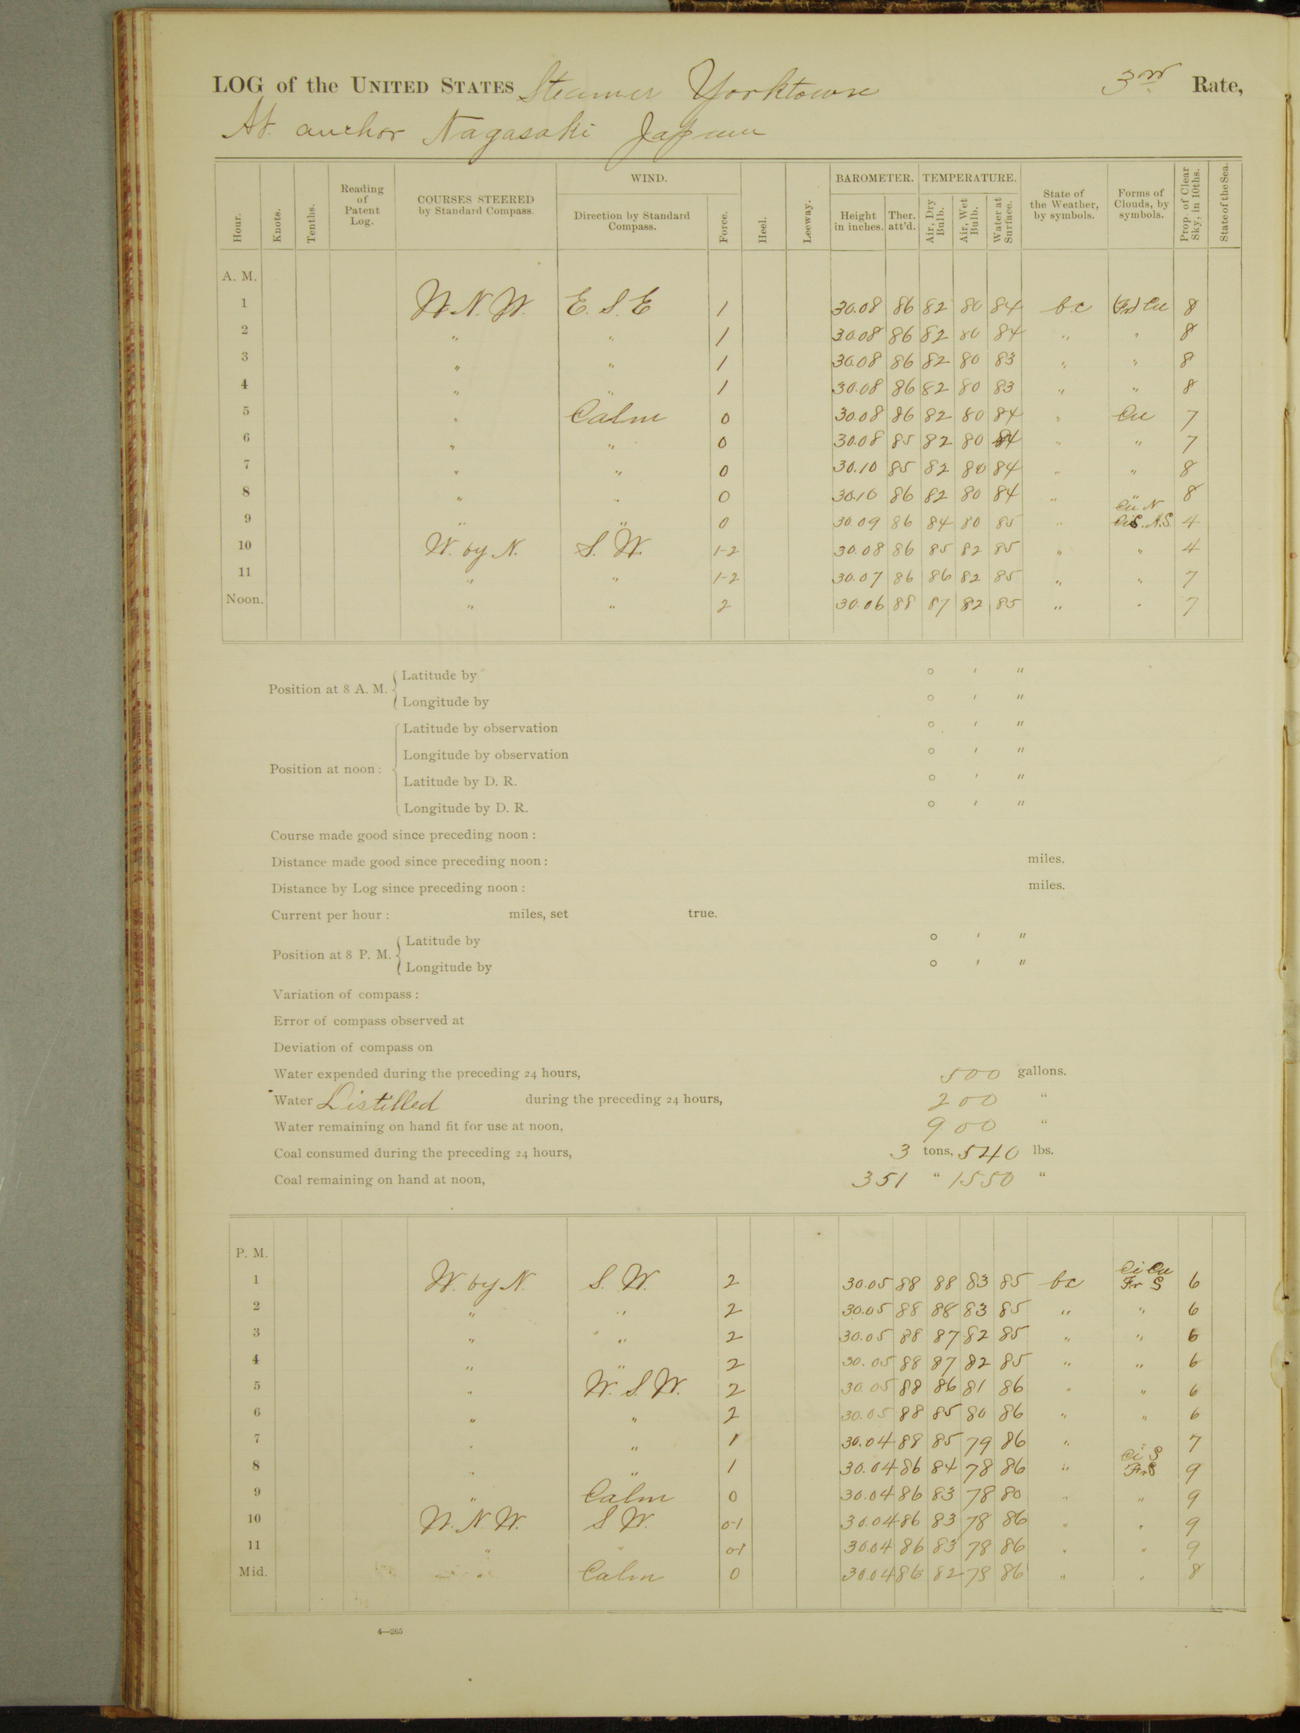 LOG of the UNITED STATES Steamer Yorktown 3rd Rate,
At anchor Nagasaki Japan
Hour. Knots. Tenths. Reading of Patent Log. COURSES STEERED by Standard Compass. WIND. Direction by Standard Compass. Force. Heel. Leeway. BAROMETER. Height in inches. Ther. att'd. TEMPERATURE. Air, Dry Bulb. Air, Wet Bulb. Water at Surface. State of the Weather, by symbols. Forms of Clouds, by symbols. Prop. of Clear Sky, in 10ths. State of the Sea.
A. M.
1 W.N.W. E.S.E 1 30.08 86 82 80 84 bc Cu 8
2 " " 1 30.08 86 82 80 84 " " 8
3 " " 1 30.08 86 82 80 83 " " 8
4 " " 1 30.08 86 82 80 83 " " 8
5 " Calm 0 30.08 86 82 80 84 " Cu 7
6 " " 0 30.08 85 82 80 84 " " 7
7 " " 0 30.10 85 82 80 84 " " 8
8 " " 0 30.10 86 82 80 84 " " 8
9 " " 0 30.09 86 84 80 85 " Cu N 4
10 W. by N. S.W. 1-2 30.08 86 85 82 85 " " 4
11 " " 1-2 30.07 86 86 82 85 " " 7
Noon. " " 2 30.06 88 87 82 85 " " 7
Position at 8 A. M. Latitude by ° ′ ″
Longitude by ° ′ ″
Position at noon: Latitude by observation ° ′ ″
Longitude by observation ° ′ ″
Latitude by D. R. ° ′ ″
Longitude by D. R. ° ′ ″
Course made good since preceding noon:
Distance made good since preceding noon: miles.
Distance by Log since preceding noon: miles.
Current per hour: miles, set true.
Position at 8 P. M. Latitude by ° ′ ″
Longitude by ° ′ ″
Variation of compass:
Error of compass observed at
Deviation of compass on
Water expended during the preceding 24 hours, 500 gallons.
Water Distilled during the preceding 24 hours, 200 "
Water remaining on hand fit for use at noon, 900 "
Coal consumed during the preceding 24 hours, 3 tons, 540 lbs.
Coal remaining on hand at noon, 351 " 1550 "
P. M.
1 W. by N. S.W. 2 30.05 88 88 83 85 bc Ci Cu Fr S 6
2 " " 2 30.05 88 88 83 85 " " 6
3 " " 2 30.05 88 87 82 85 " " 6
4 " " 2 30.05 88 87 82 85 " " 6
5 " W.S.W. 2 30.05 88 86 81 86 " " 6
6 " " 2 30.05 88 85 80 86 " " 6
7 " " 1 30.04 88 85 79 86 " " 7
8 " " 1 30.04 86 84 78 86 " Ci S Fr S 9
9 " Calm 0 30.04 86 83 78 80 " " 9
10 W.N.W. S.W. 0-1 30.04 86 83 78 86 " " 9
11 " " 0-1 30.04 86 83 78 86 " " 9
Mid. " Calm 0 30.04 86 82 78 86 " " 8
4—265